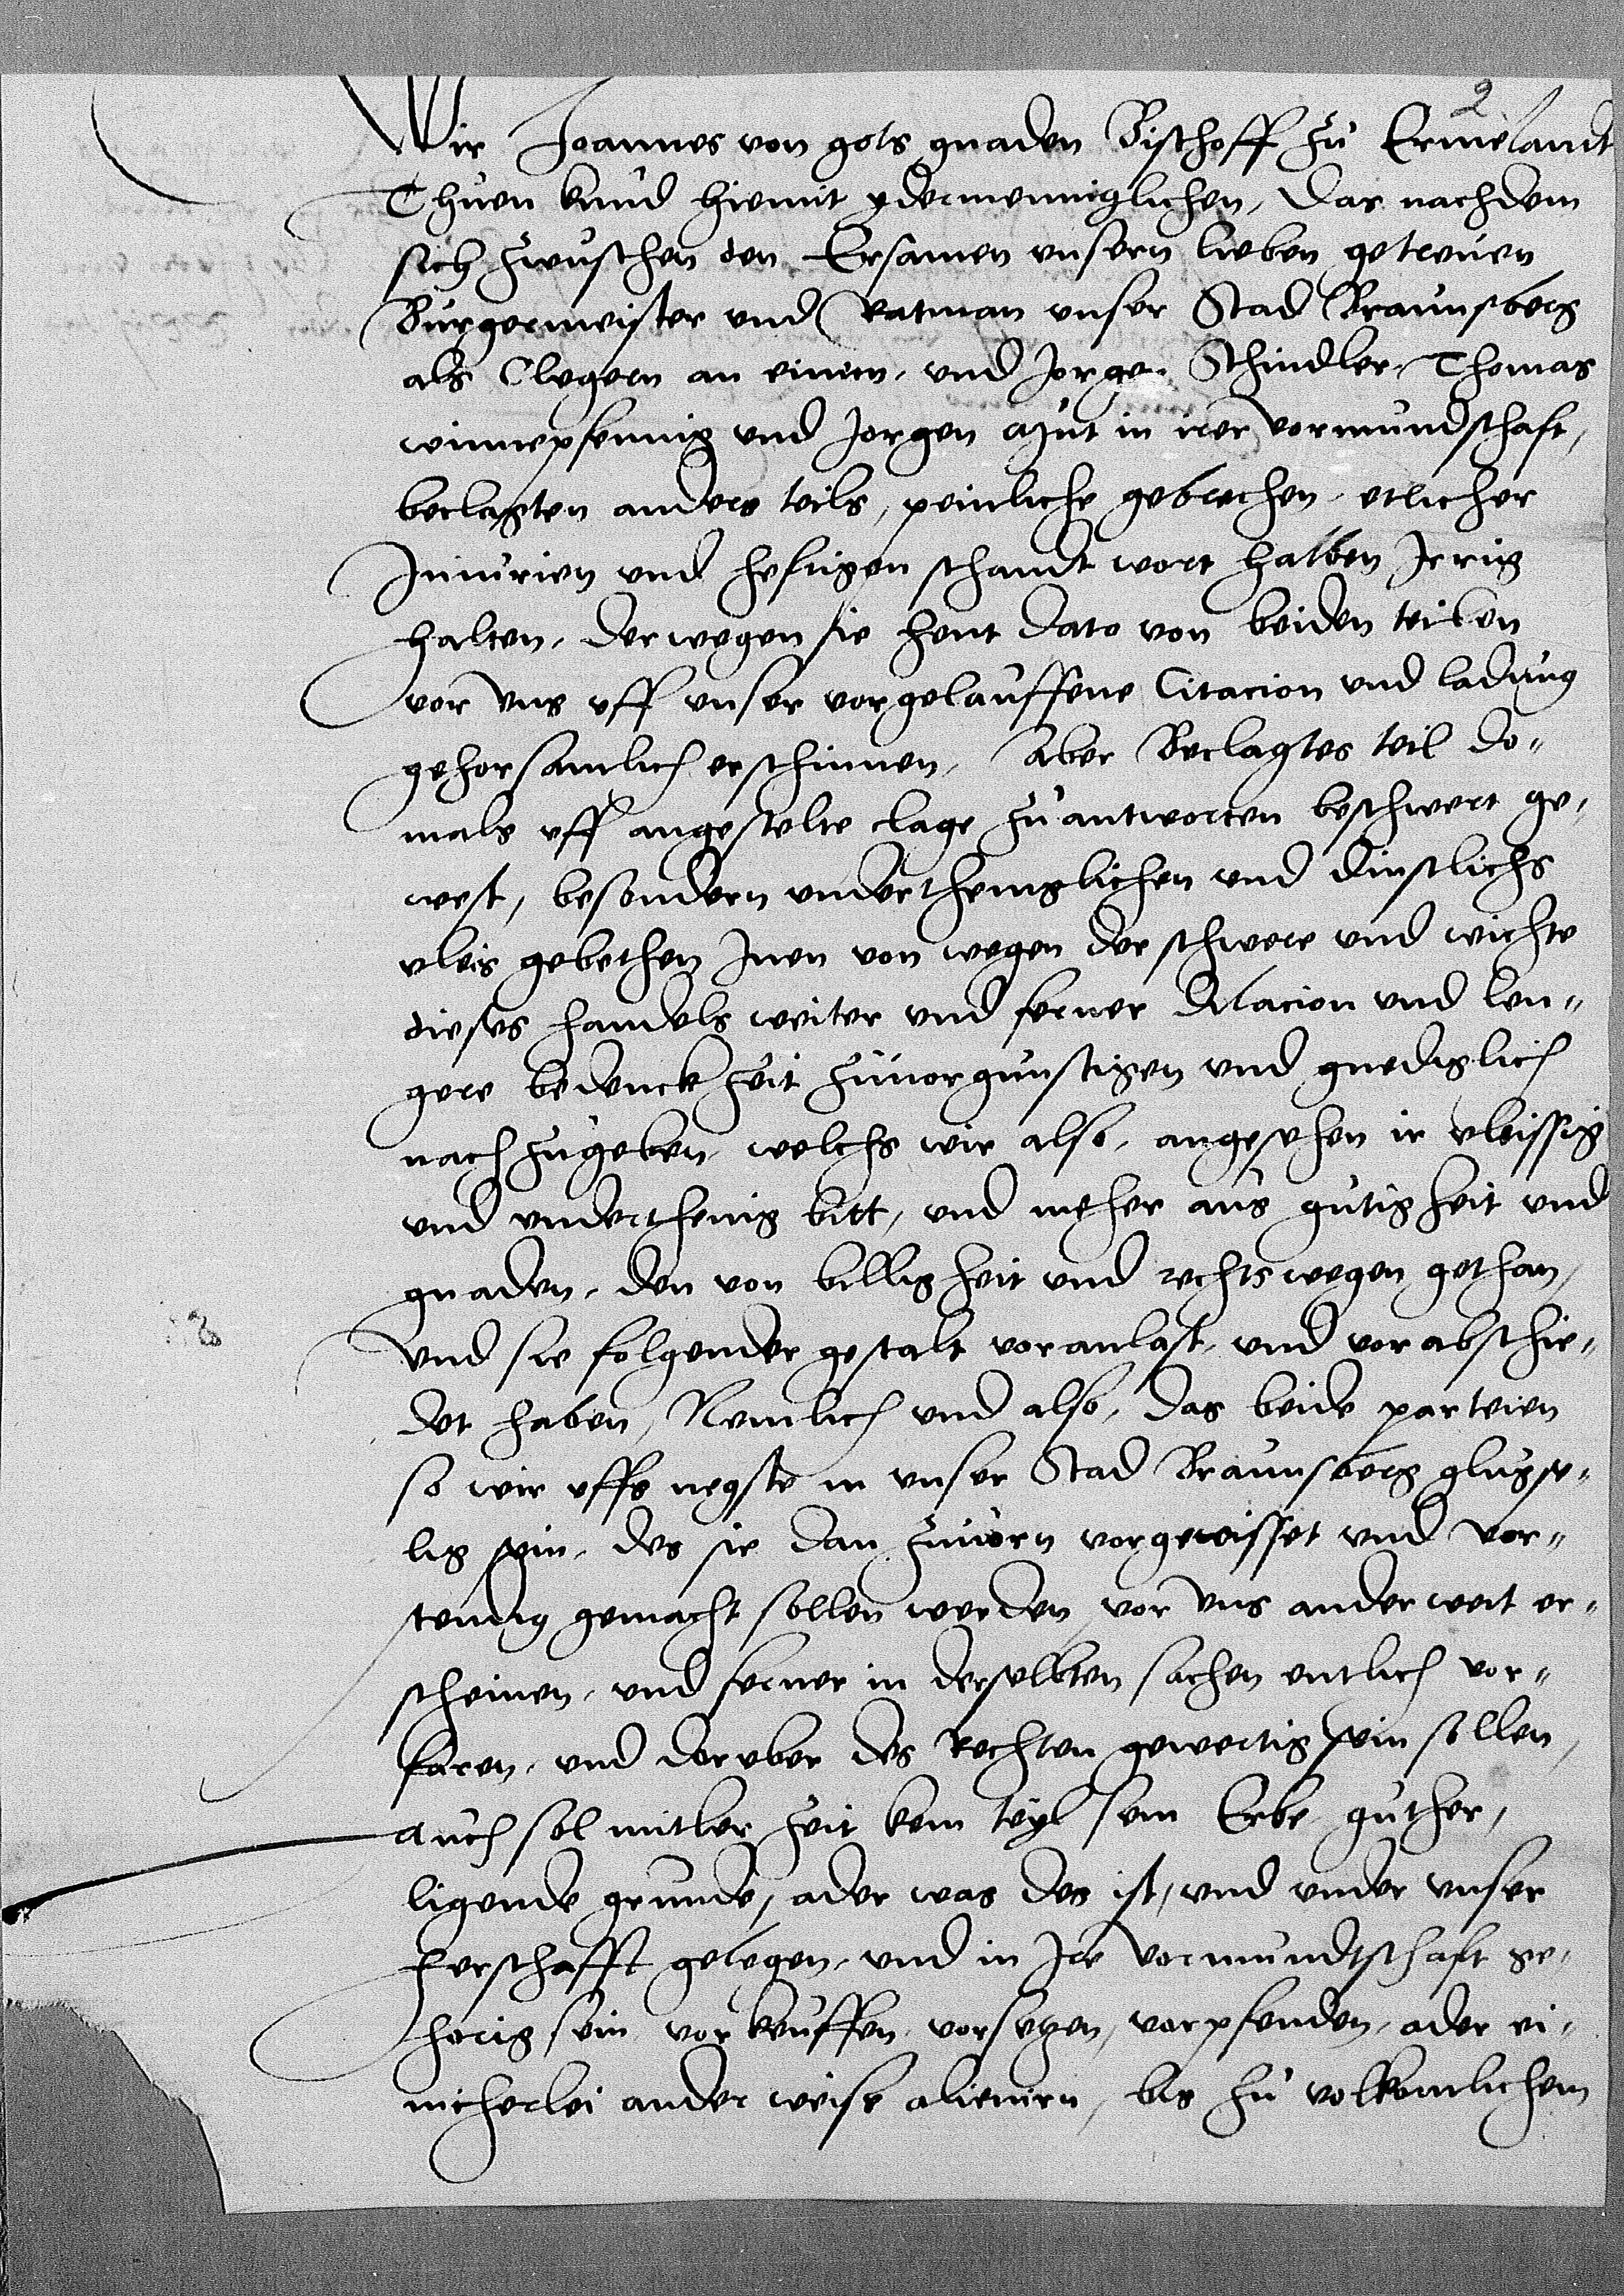 2
Wir Joannes von gots gnaden Bischoff zu Ermelandt
Thuen kund hiemit ydermenniglichen, Das nachdem
sich zwuschen den Ersamen unsern lieben getreuen
Burgermeister und Ratman unser Stad Braunsberg
als Clegern an einem, und Jorge Schindler, Thomas
winnepfennig und Jorgen in irer vormundschaft,
beclagten anders teils, peinliche gebrechen, etlicher
Iniurien und heftigen schandt wort halben Irrig
halten, derwegen sie heut dato von beiden teilen
vor uns uff unser vorgelauffene Citacion und ladung
gehorsamlich erschinnen, Aber Beclagtes teil do-
mals uff angestelte clage zu antworten beschwert ge-
west, besondern underthenniglichen und dinstlichs
vleis gebethen Inen von wegen der schwere und wichte
dieses handels weiter und ferner Dilacion und len-
gere bedenck zeit zuuorgunstigen und gnediglich
nachzugeben, welchs wir also, angesehen ir vleissig
und underthenig bitt, und meher aus gutigheit und
gnaden, den von billigheit und rechts wegen gethan,
Und sie folgender gestalt voranlast, und vorabschie-
det haben, Nemlich und also, das beide parteien
so wir uffs negste in unser Stad Braunsberg glugse-
lig sein, des sie dan zuuorn vorgewisset und vor-
stendig gemacht sollen werden, vor uns anderweit er-
scheinen, und ferner in derselbten sachen entlich vor-
faren, und doruber des Rechten gewertig sein sollen,
Auch sol mitler zeit kein teyl sein Erbe, guther,
ligende grunde, ader was des ist, und under unser
herschafft gelegen, und in Ire vormundtschaft ge-
horig sein, vorkeuffen, vorsetzen, vorpfenden, ader ei-
nicherlei ander weise alienirn, bis zu volkomlichem